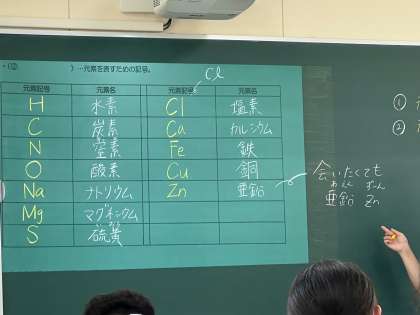 )…元素を表すための記号。
Cl
元素記号 元素名 元素記号 元素名
H 水素 Cl 塩素
C 炭素 Ca カルシウム
N 窒素 Fe 鉄
O 酸素 Cu 銅
Na ナトリウム Zn 亜鉛
Mg マグネシウム
S 硫黄
会いたくても
あえん ずーん
亜鉛 Zn
①
②